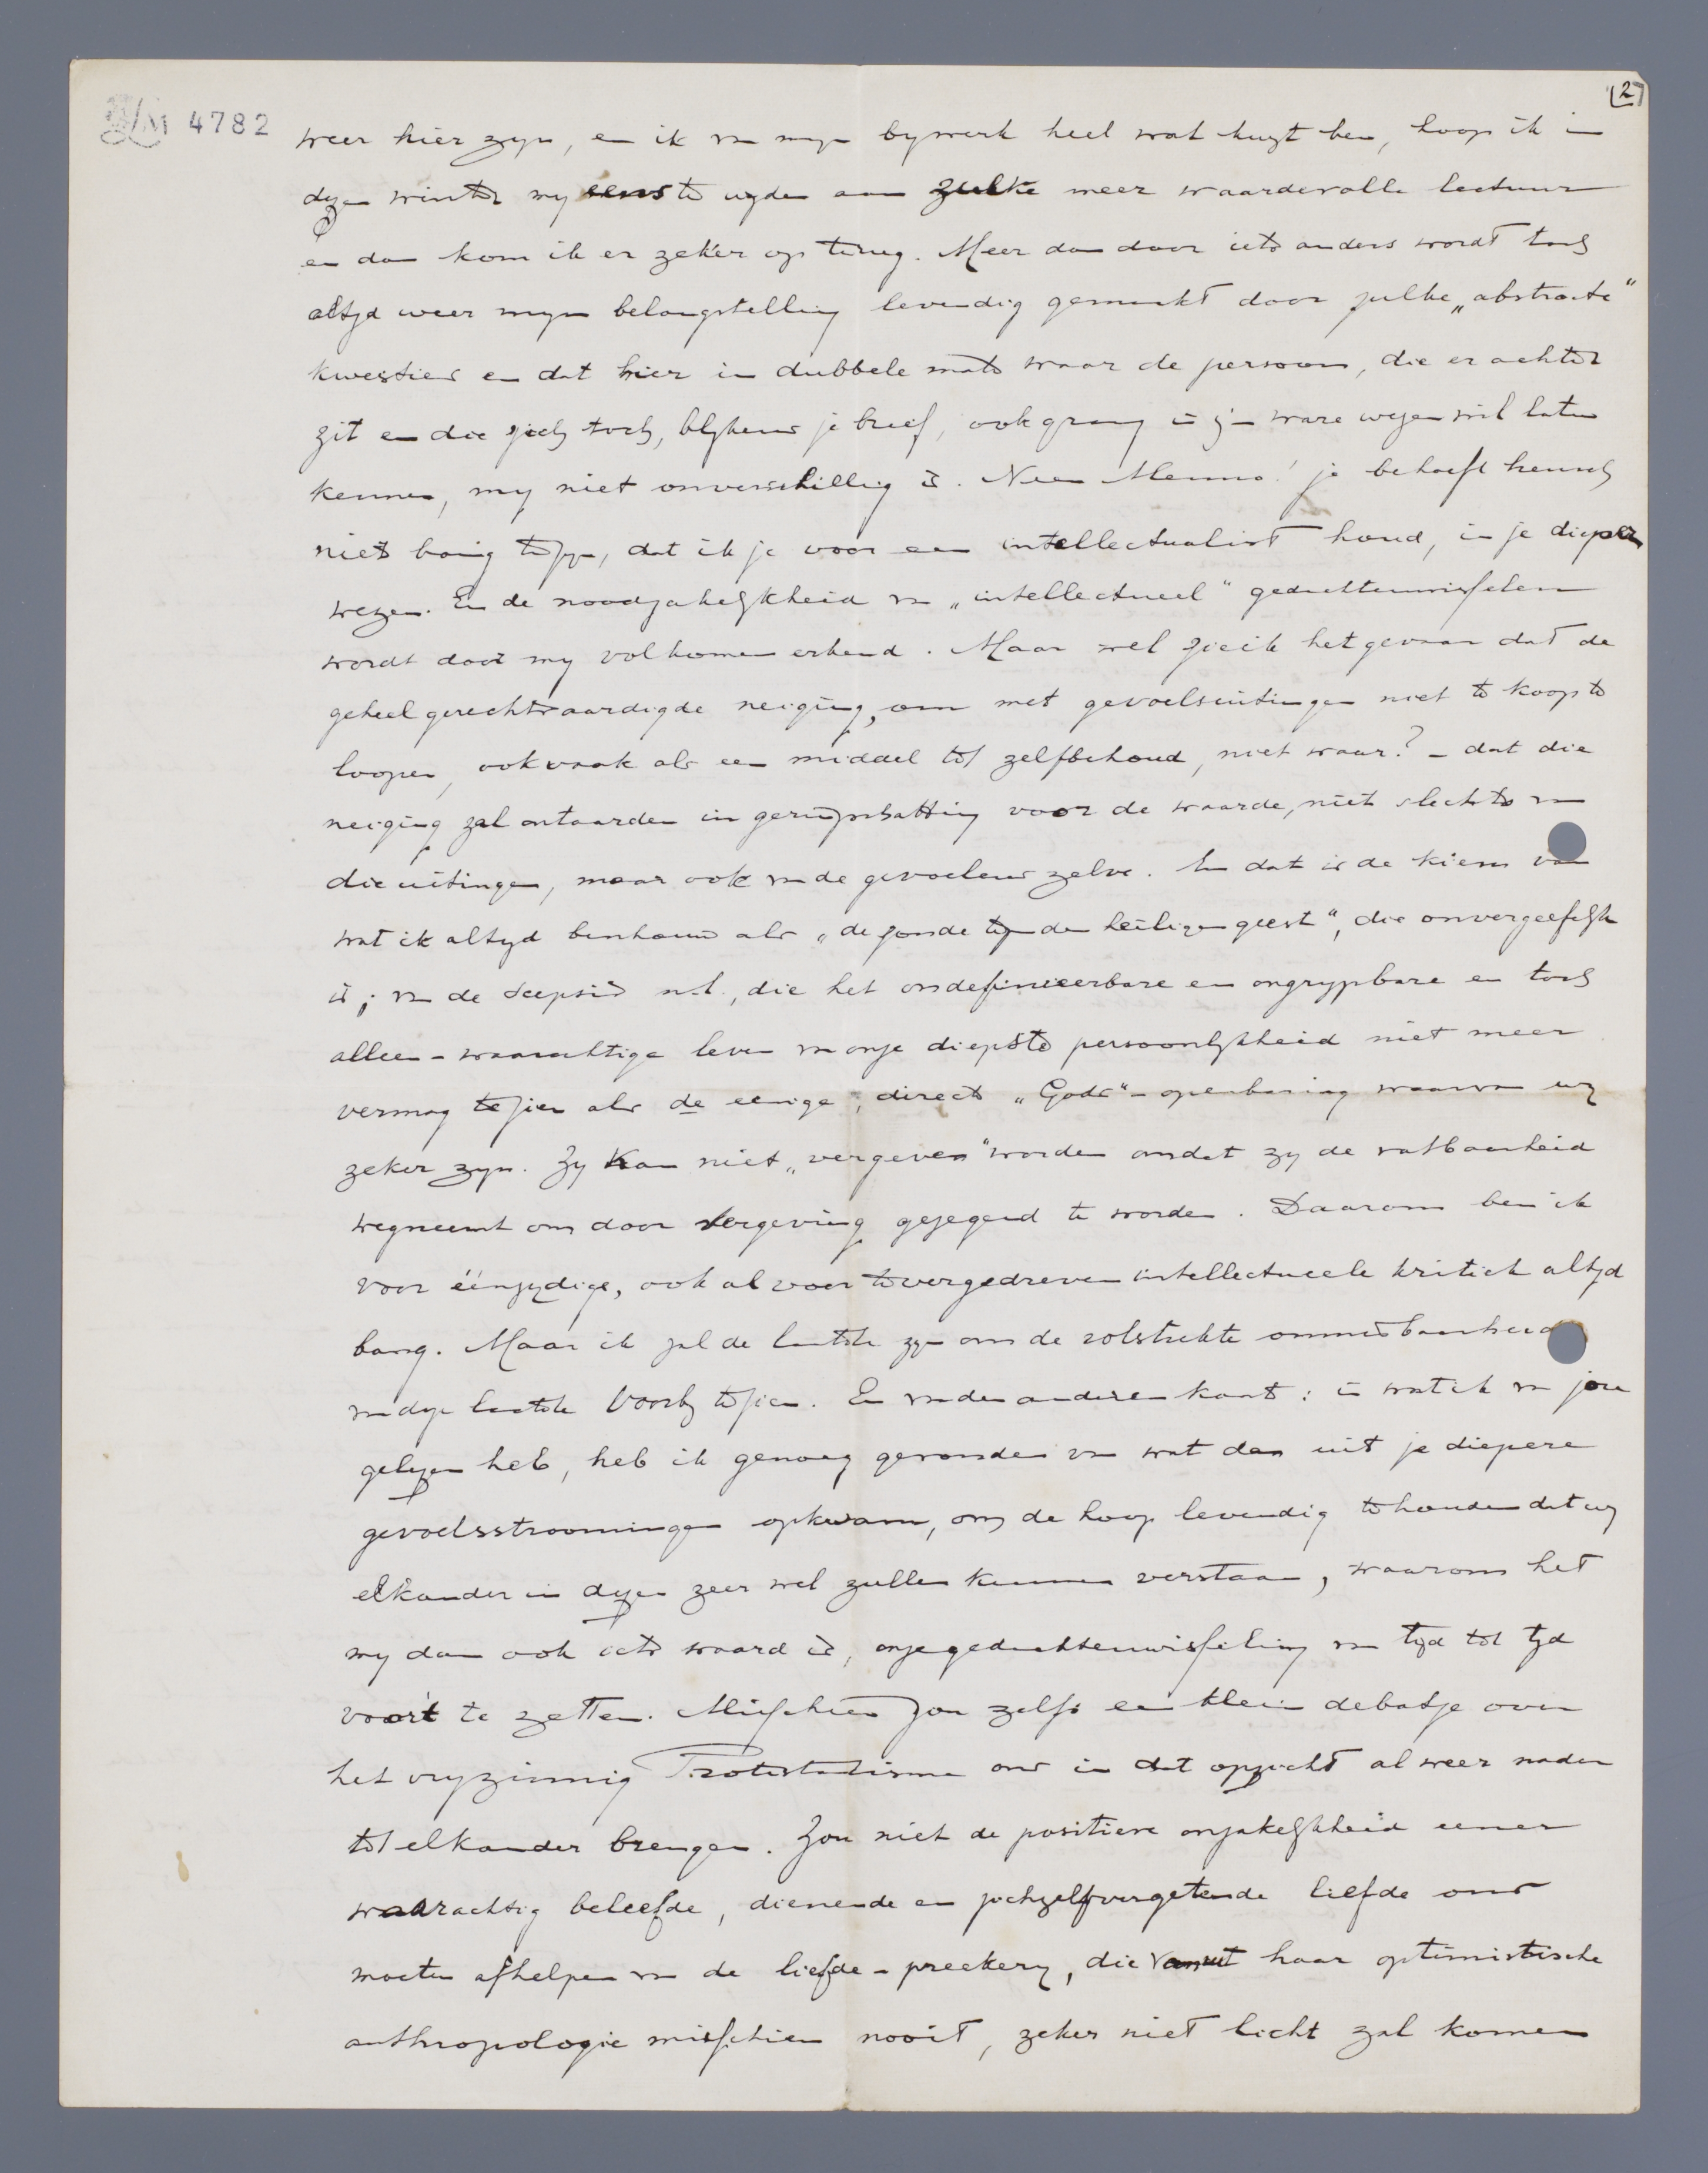 (2)
LM 4782
weer hier zyn, en ik van myn bywerk heel wat kwyt ben, hoop ik in
dezen winter my eens te wyden aan zulke meer waardevolle lectuur
en dan kom ik er zeker op terug. Meer dan door iets anders wordt toch
altyd weer myn belangstelling levendig gemaakt door zulke „abstracte"
kwesties en dat hier in dubbele mate waar de persoon, die er achter
zit en die zich toch, blykens je brief, ook graag in z'n ware wezen wil laten
kennen, my niet onverschillig is. Neen Menno! je behoeft heusch
niet bang te zyn, dat ik je voor een intellectualist houd, in je diepen
wezen. En de noodzakelykheid van „intellectueel" gedachtenwisselen
wordt door my volkomen erkend. Maar wel zie ik het gevaar dat de
geheel gerechtvaardigde neiging, om met gevoelsuitingen niet te koop te
loopen, ook vaak als een middel tot zelfbehoud, niet waar? – dat die
neiging zal ontaarden in geringschatting voor de waarde, niet slechts van
die uitingen, maar ook van de gevoelens zelve. En dat is de kiem van
wat ik altyd beschouw als „de zonde tegen den heiligen geest", die onvergeeflyk
is; van de scepsis n.l., die het ondefinieerbare en ongrypbare en toch
alleen-waarachtige leven van onze diepste persoonlykheid niet meer
vermag te zien als de eenige, directe „Gods"-openbaring waarvan wy
zeker zyn. Zy kan niet „vergeven" worden omdat zy de vatbaarheid
wegneemt om door vergeving gezegend te worden. Daarom ben ik
voor éénzydige, ook al voor te vergedreven intellectueele kritiek altyd
bang. Maar ik zal de laatste zyn om de volstrekte onmisbaarheid
van deze laatste voorby te zien. En van den anderen kant: in wat ik van jou
gelezen heb, heb ik genoeg gevonden van wat dan uit je diepere
gevoelsstroomingen opkwam, om de hoop levendig te houden dat wy
elkander in dezen zeer wel zullen kunnen verstaan, waarom het
my dan ook iets waard is, onze gedachtenwisseling van tyd tot tyd
voort te zetten. Misschien zou zelfs een klein debatje over
het vryzinnig Protestantisme ons in dat opzicht al weer nader
tot elkander brengen. Zou niet de positieve onzakelykheid eener
waarachtig beleefde, dienende en zichzelfvergetende liefde ons
moeten afhelpen van de liefde-preekery, die vanuit haar optimistische
anthropologie misschien nooit, zeker niet licht zal komen